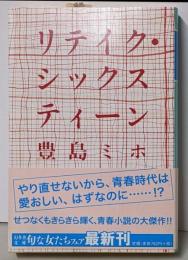 リテイク・
シックス
ティーン
豊島ミホ
やり直せないから、青春時代は
愛おしい、はずなのに……!?
せつなくもきらきら輝く、青春小説の大傑作!!
旬な女たちフェア
最新刊